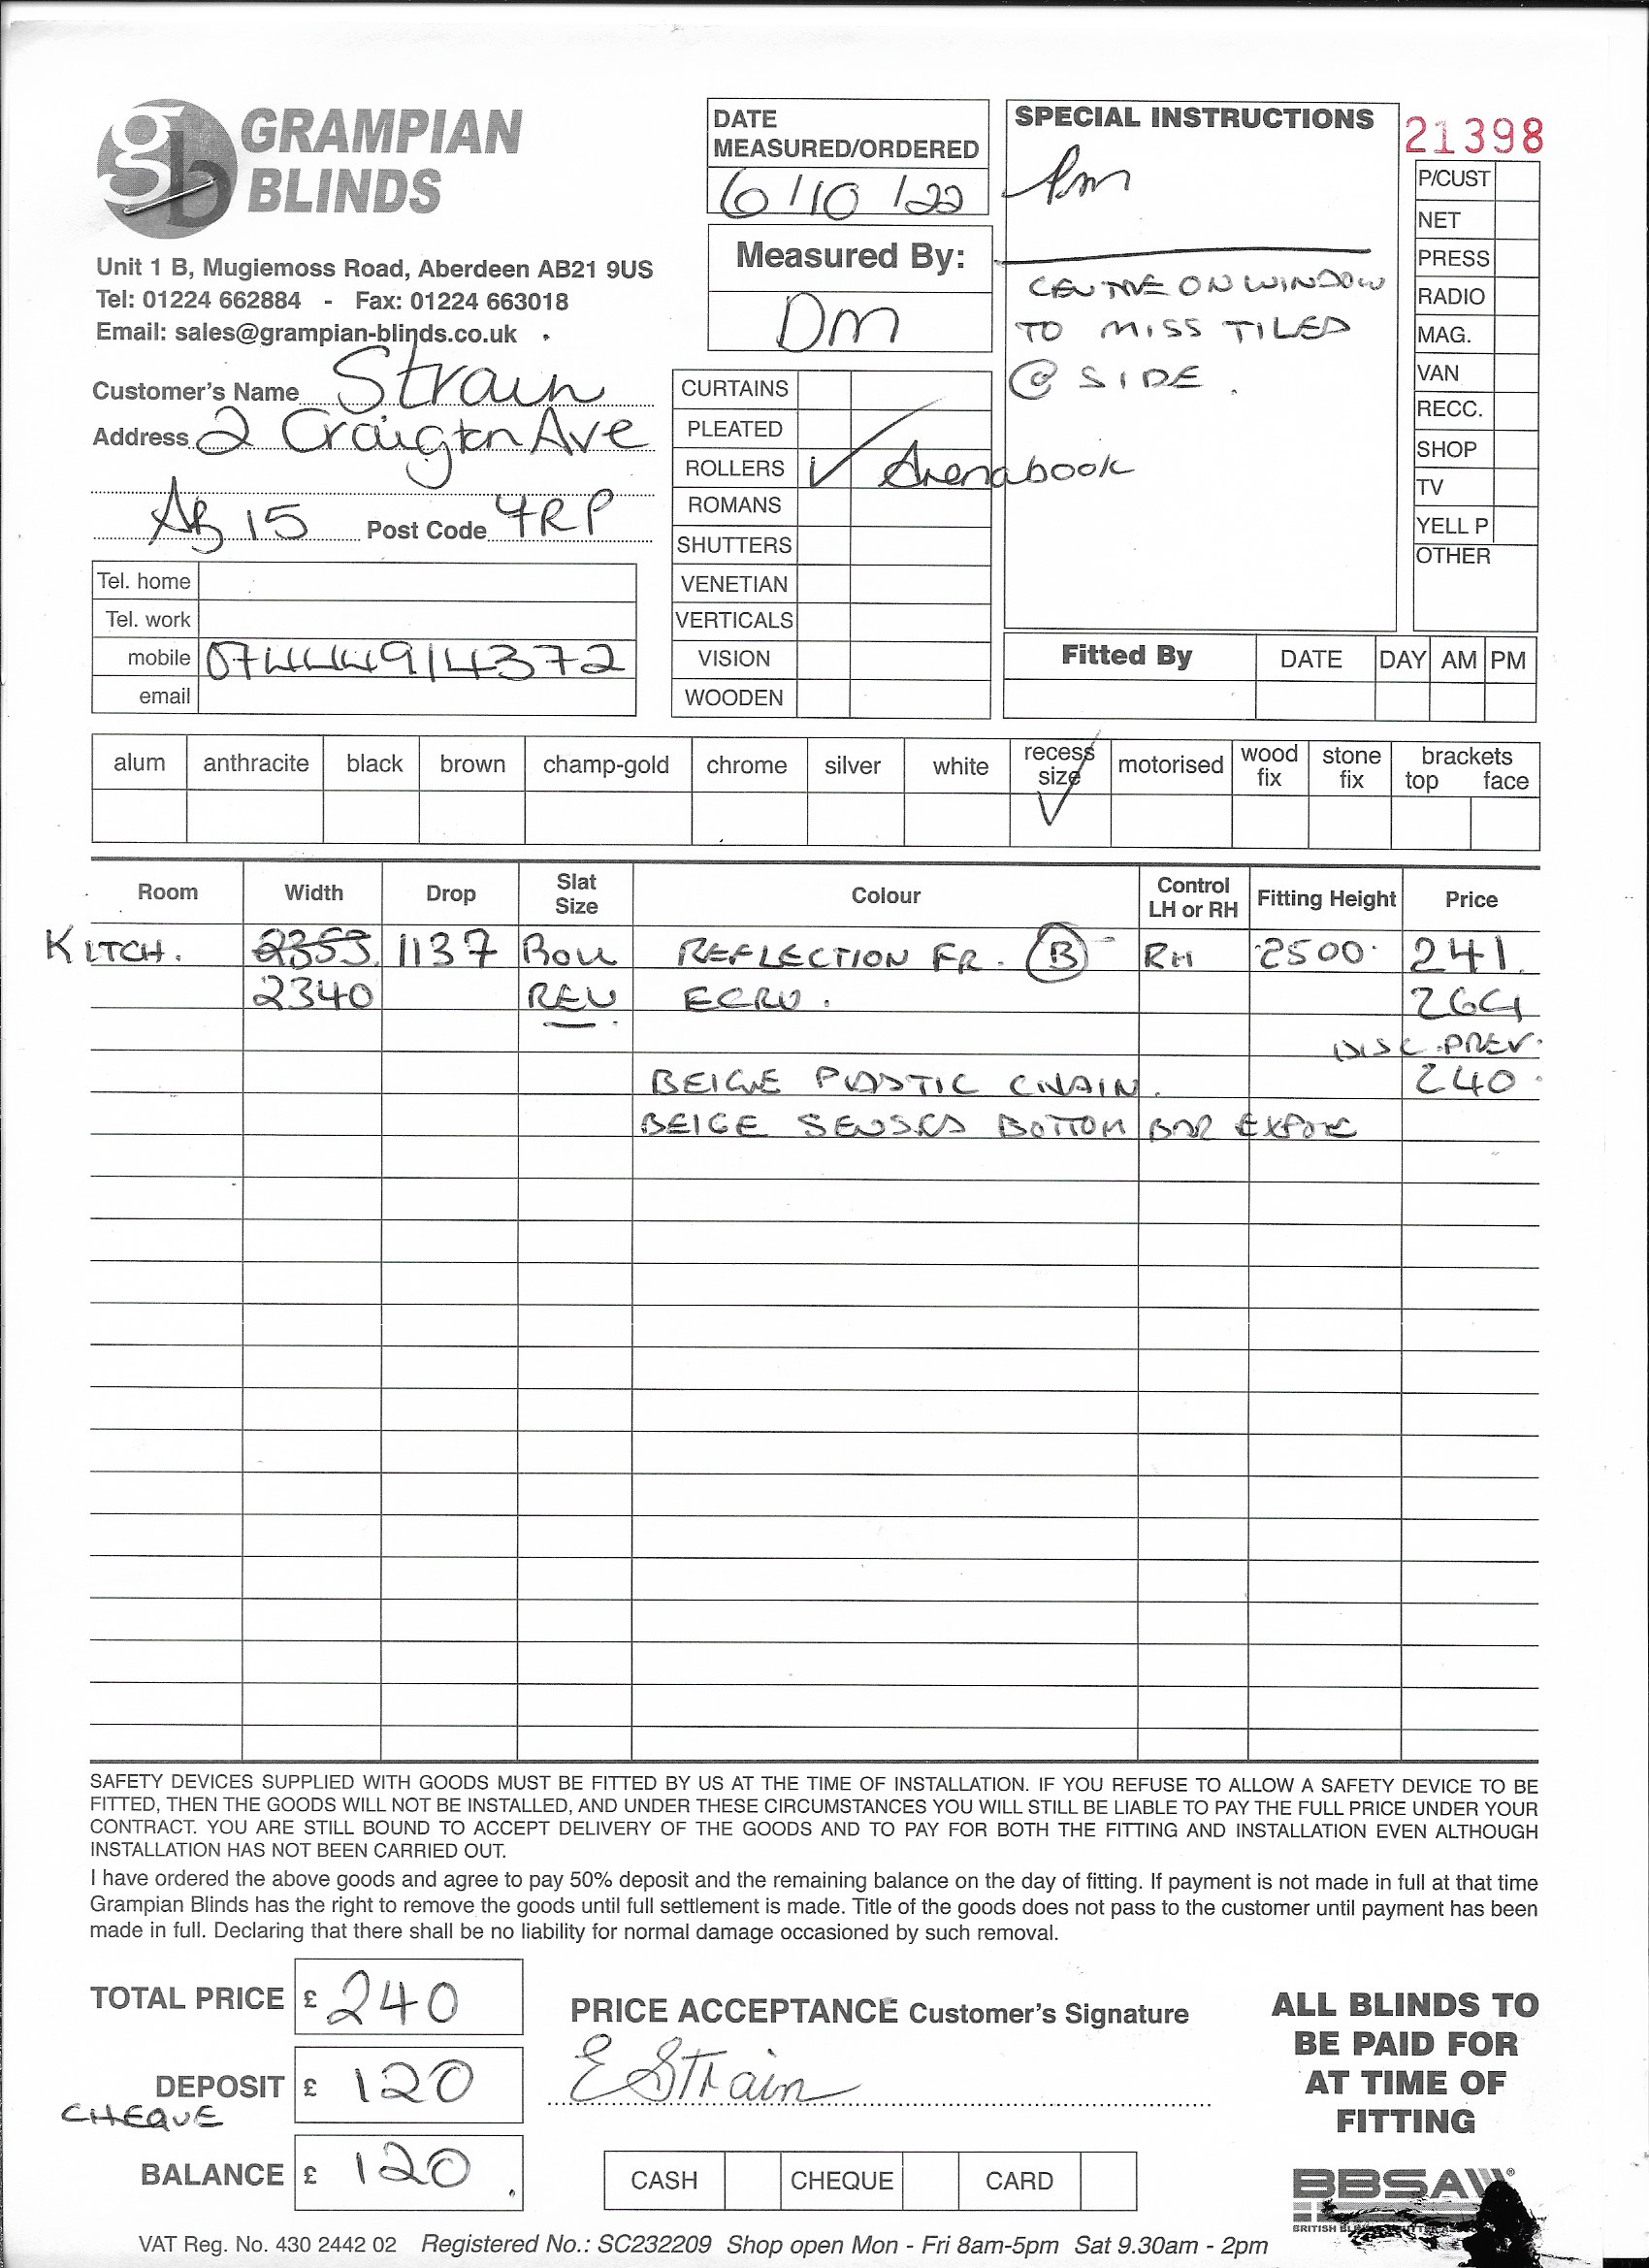 gb GRAMPIAN
BLINDS
Unit 1 B, Mugiemoss Road, Aberdeen AB21 9US
Tel: 01224 662884 - Fax: 01224 663018
Email: sales@grampian-blinds.co.uk
Customer's Name Strain
Address 2 Craigton Ave
AB 15 Post Code 7RP
Tel. home
Tel. work
mobile 07444914372
email
DATE
MEASURED/ORDERED
6/10/22
Measured By:
DM
CURTAINS
PLEATED
ROLLERS ✓ Arenabook
ROMANS
SHUTTERS
VENETIAN
VERTICALS
VISION
WOODEN
SPECIAL INSTRUCTIONS
Pm
CENTRE ON WINDOW
TO MISS TILED
@ SIDE.
21398
P/CUST
NET
PRESS
RADIO
MAG.
VAN
RECC.
SHOP
TV
YELL P
OTHER
Fitted By DATE DAY AM PM
alum anthracite black brown champ-gold chrome silver white recess size ✓ motorised wood fix stone fix brackets top face
Room Width Drop Slat Size Colour Control LH or RH Fitting Height Price
KITCH. 2353 1137 ROLL REFLECTION FR. B RH 2500 241
2340 REV ECRU. 264
DISC.PREV.
BEIGE PLASTIC CHAIN. 240
BEIGE SENSES BOTTOM BAR
SAFETY DEVICES SUPPLIED WITH GOODS MUST BE FITTED BY US AT THE TIME OF INSTALLATION. IF YOU REFUSE TO ALLOW A SAFETY DEVICE TO BE
FITTED, THEN THE GOODS WILL NOT BE INSTALLED, AND UNDER THESE CIRCUMSTANCES YOU WILL STILL BE LIABLE TO PAY THE FULL PRICE UNDER YOUR
CONTRACT. YOU ARE STILL BOUND TO ACCEPT DELIVERY OF THE GOODS AND TO PAY FOR BOTH THE FITTING AND INSTALLATION EVEN ALTHOUGH
INSTALLATION HAS NOT BEEN CARRIED OUT.
I have ordered the above goods and agree to pay 50% deposit and the remaining balance on the day of fitting. If payment is not made in full at that time
Grampian Blinds has the right to remove the goods until full settlement is made. Title of the goods does not pass to the customer until payment has been
made in full. Declaring that there shall be no liability for normal damage occasioned by such removal.
TOTAL PRICE £ 240
DEPOSIT £ 120
CHEQUE
BALANCE £ 120
PRICE ACCEPTANCE Customer's Signature
E Strain
CASH CHEQUE CARD
ALL BLINDS TO
BE PAID FOR
AT TIME OF
FITTING
BBSA
BRITISH
VAT Reg. No. 430 2442 02 Registered No.: SC232209 Shop open Mon - Fri 8am-5pm Sat 9.30am - 2pm